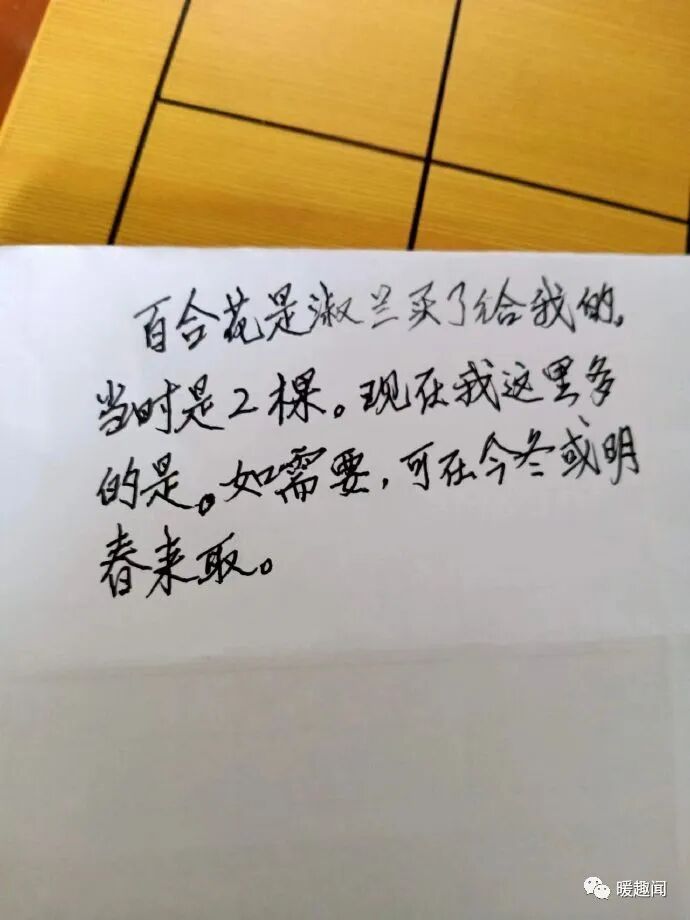 百合花是淑兰买了给我的。
当时是2棵。现在我这里多
的是。如需要,可在今冬或明
春来取。
暖趣闻